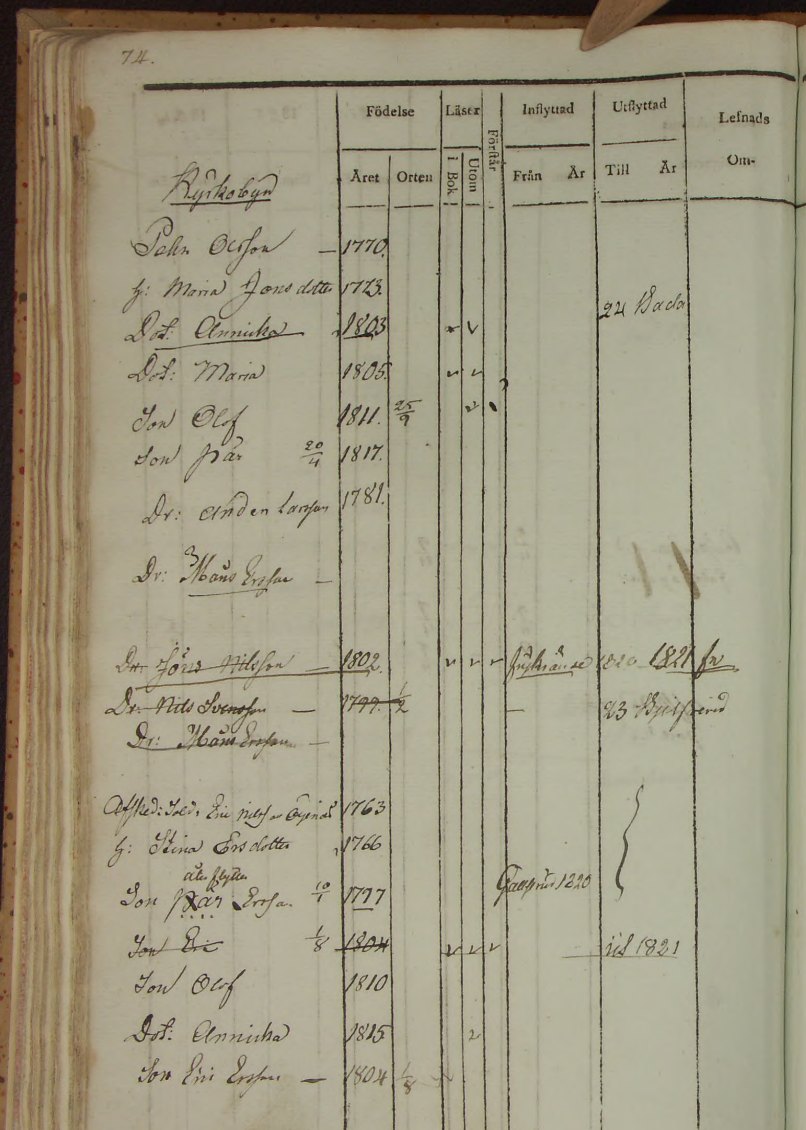 74.
Födelse Läser Förstår Inflyttad Utflyttad Lefnads
Året Orten i Bok Utom Från År Till År Om-
Kyrkobyn
Pehr Olsson — 1770.
h: Maria Jonsdotter 1773.
24 Bada
Dot: Annicka 1803
Dot: Maria 1805.
Son Olof 1811. 25/9
Son Pär 20/4 1817.
Dr: Anders Larsson 1781.
Dr: Måns Ersson —
Dr: Jöns Nilsson — 1802. 1820 1821
Dr: Nils Svensson — 1799. 1/2 — 23
Dr: Måns Ersson —
Afsked: Sold. Eric Nilsson 1763
h: Stina Ersdotter 1766
åter flyttar
Son Pär Ersson 10/1 1797 1820
Son Eric 1/8 1804 ut 1821
Son Olof 1810
Dot: Annicka 1815
Son Eric Ersson — 1804 1/8